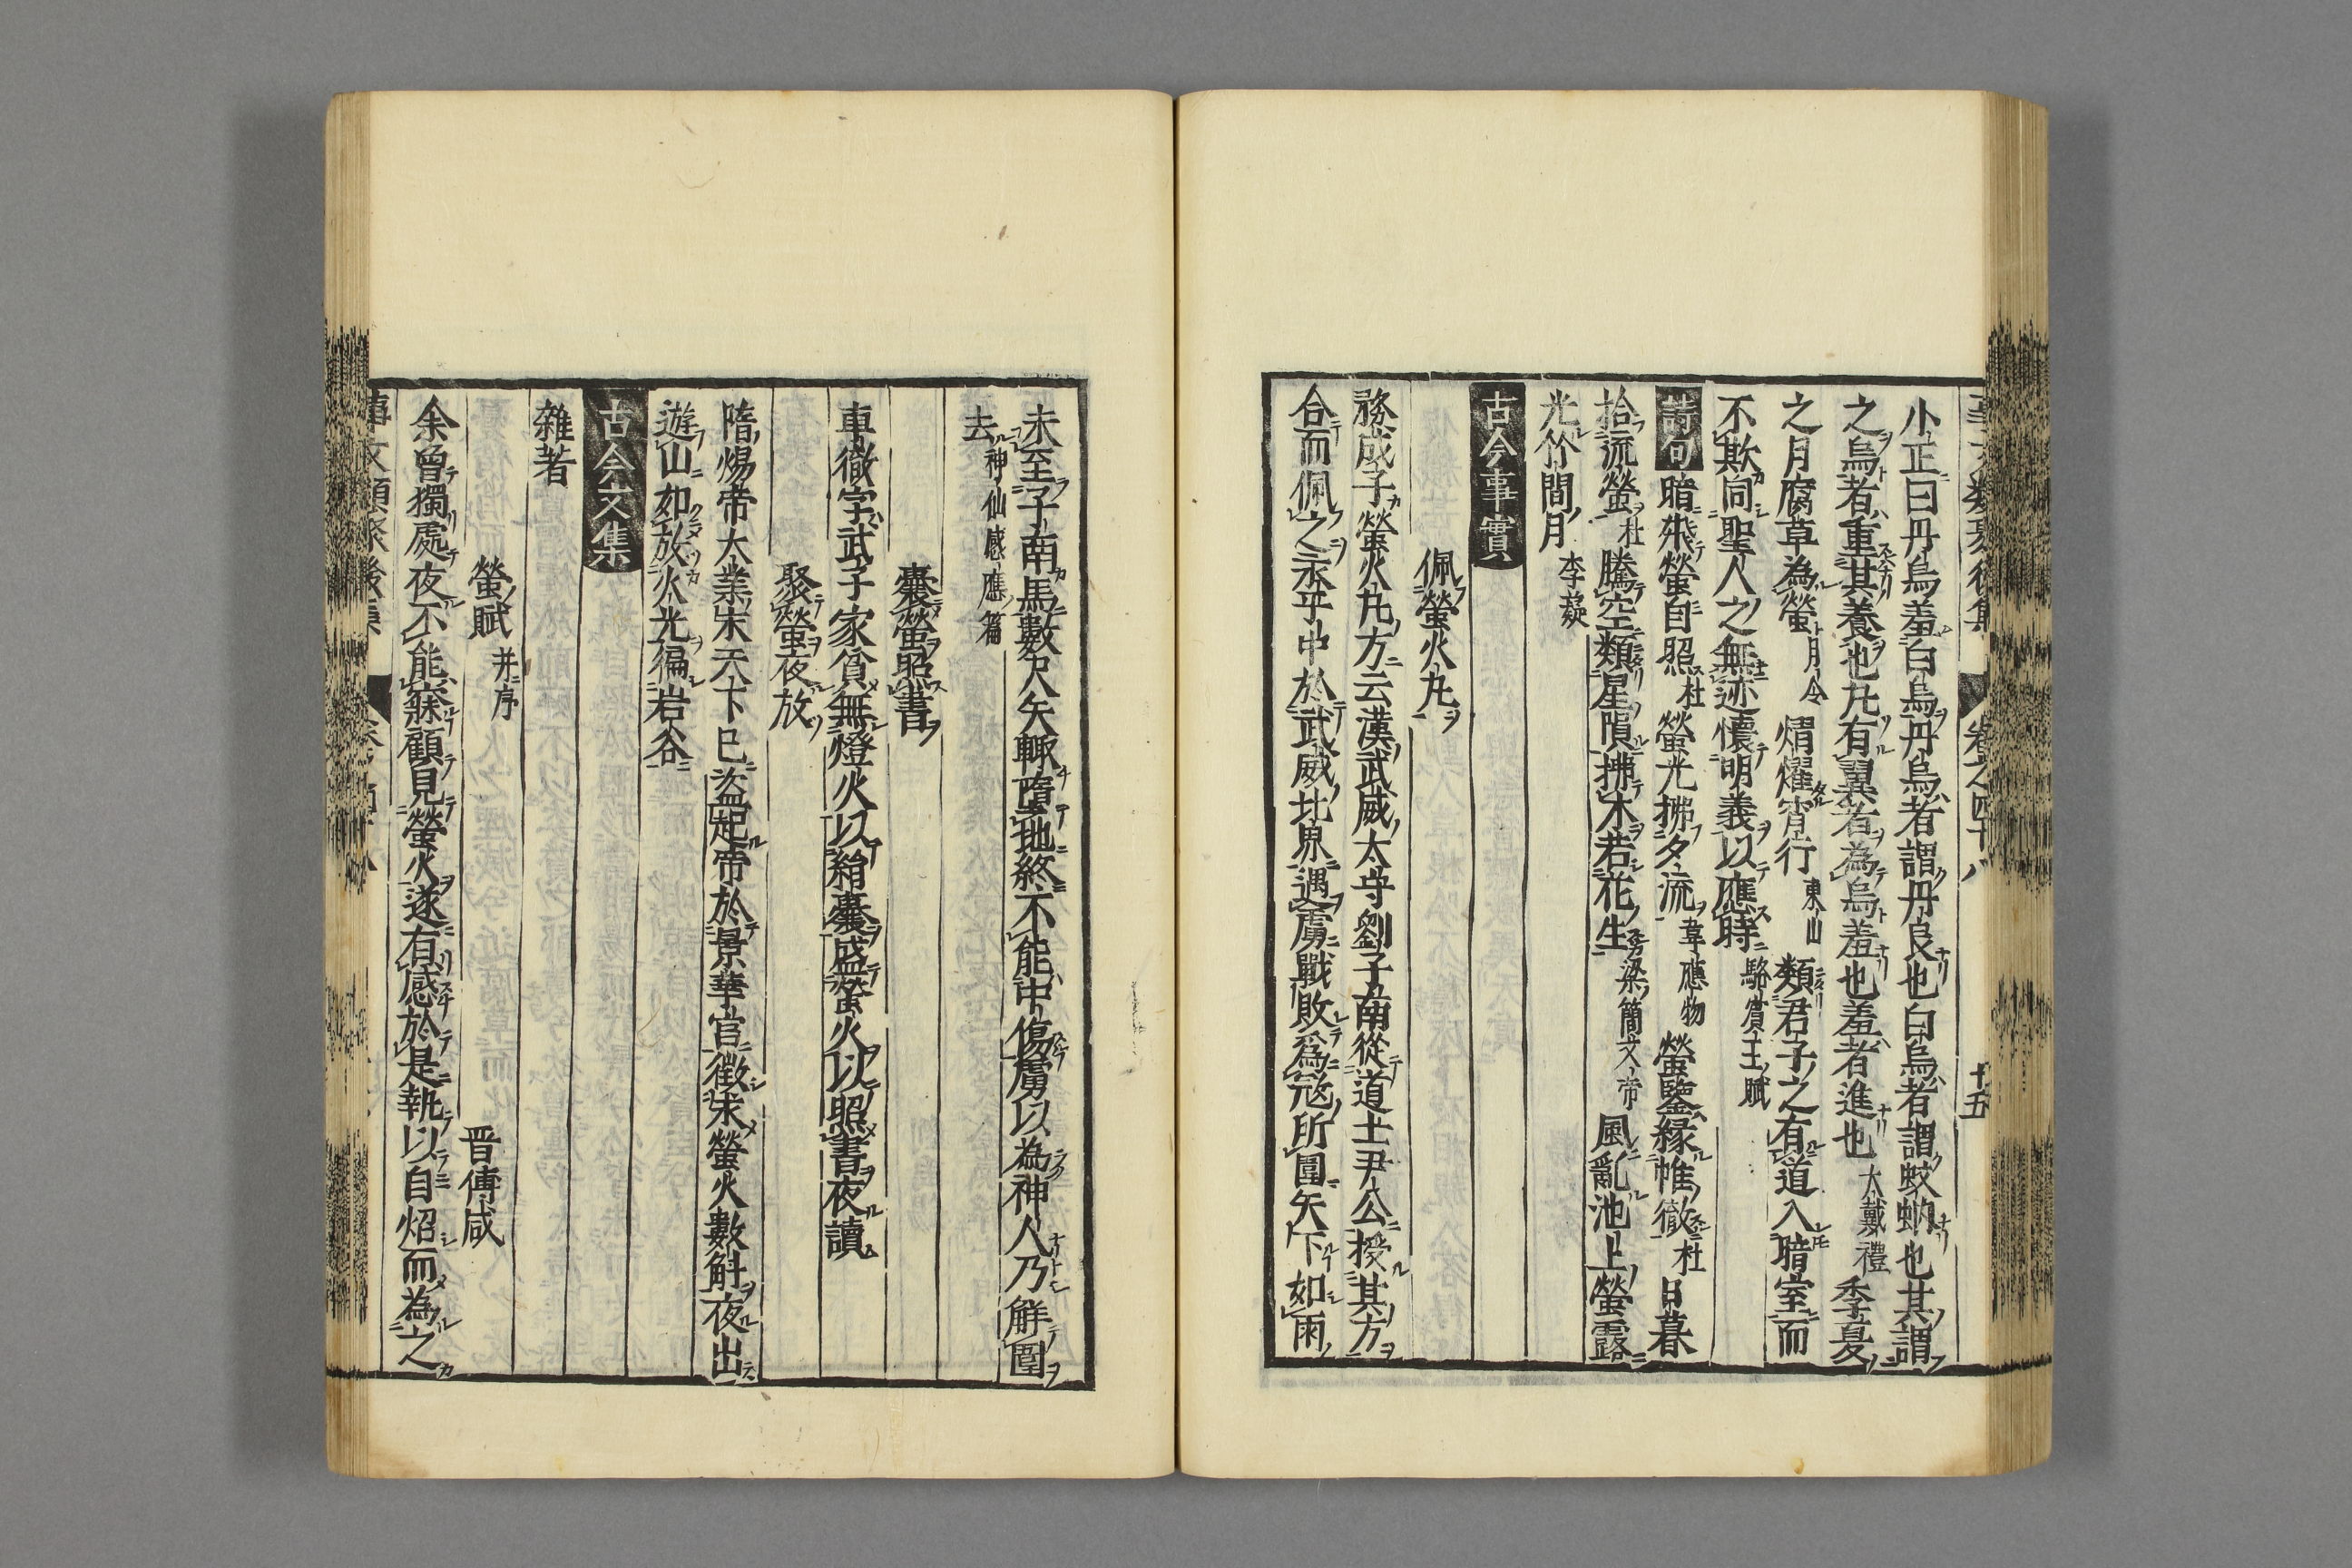 小正曰丹鳥羞白鳥丹鳥者謂丹良也白鳥者謂蚊蚋也其謂
之鳥者重其養也凡有翼者為鳥羞也羞者進也 大戴禮 季夏
之月腐草為螢 月令 熠燿宵行 東山 類君子之有道入暗室而
不欺同聖人之無迹懷明義以應時 駱賓王賦
詩句 暗飛螢自照 杜 螢光拂夕流 韋應物 螢鑒緣帷徹 杜 日暮
拾流螢 杜 騰空類星隕拂木若花生 梁簡文帝 風亂池上螢露
光竹間月 李嶷
古今事實
佩螢火丸
務成子螢火丸方云漢武威太守劉子南從道士尹公授其方
合而佩之永平中於武威北界遇虜戰敗為寇所圍矢下如雨
未至子南馬數尺矢輒墮地終不能中傷虜以為神人乃解圍
去 神仙感應篇
囊螢照書
車徹字武子家貧無燈火以絹囊盛螢火以照書夜讀
聚螢夜放
隋煬帝大業末天下已盜起帝於景華宮徵求螢火數斛夜出
遊山如放火光徧岩谷
古今文集
雜著
螢賦 并序 晋傅咸
余曾獨處夜不能寐顧見螢火遂有感於是執以自炤而為之